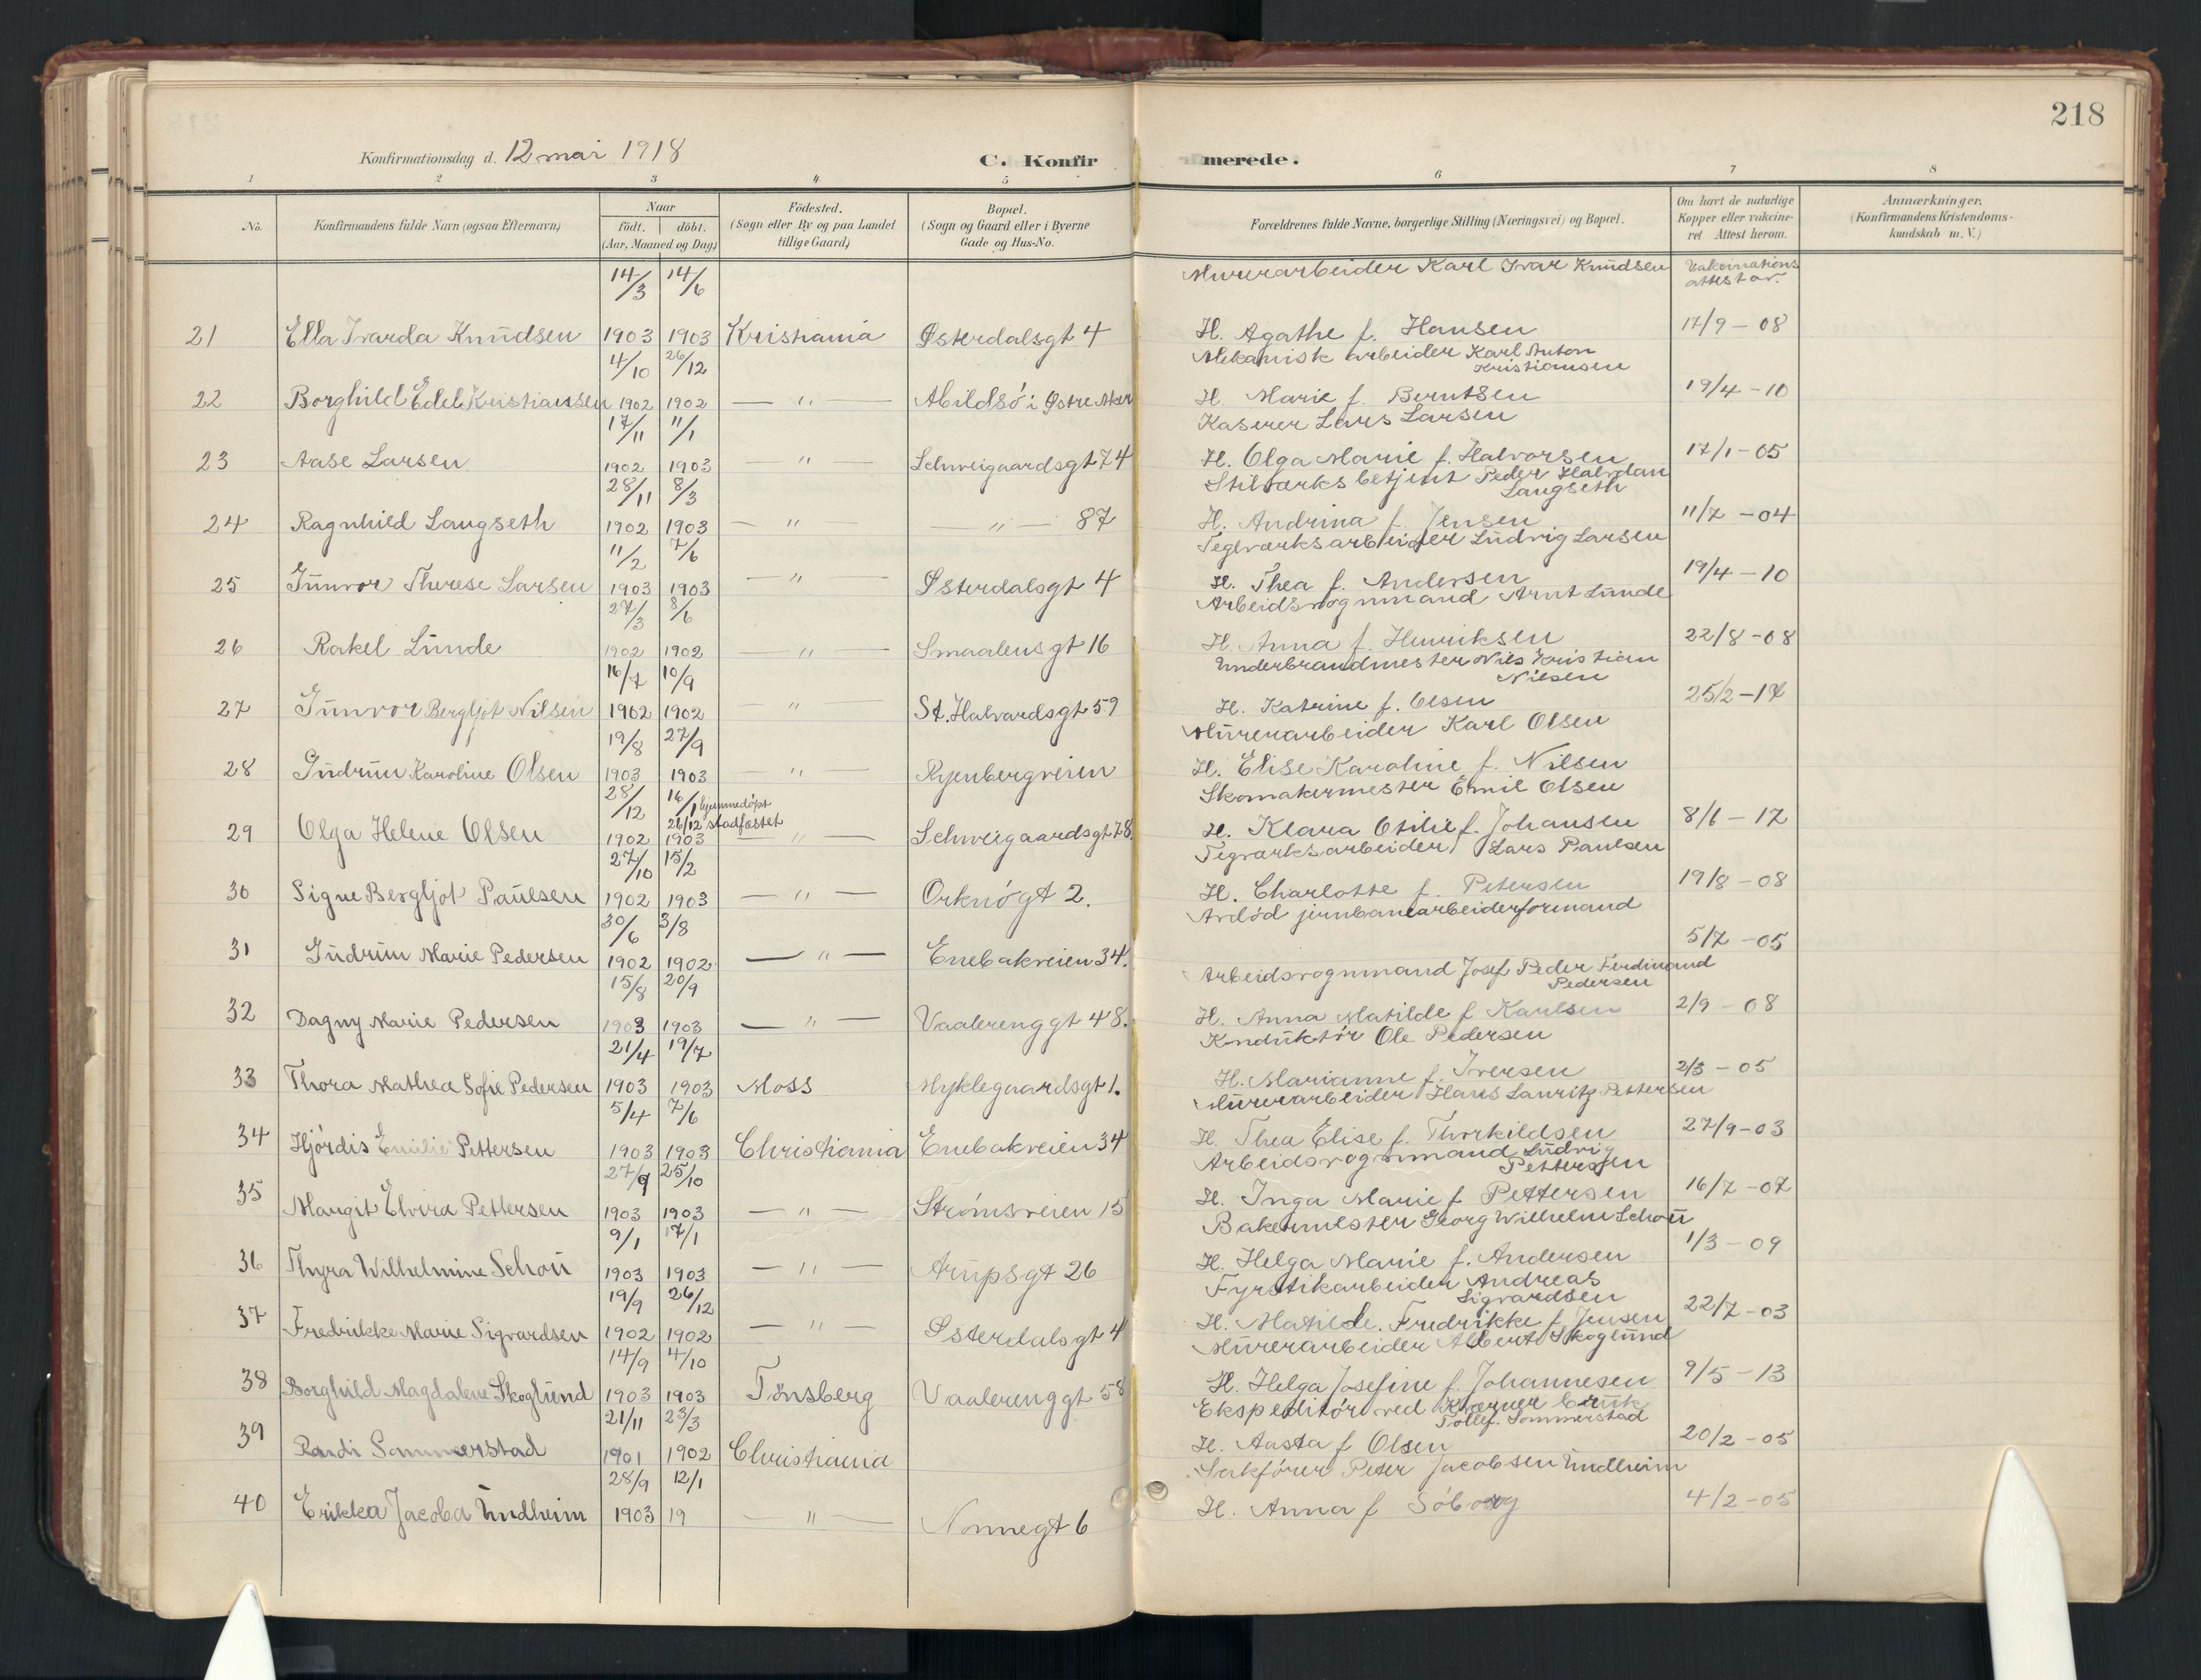 218
Konfirmationsdag d. 12 mai 1918
C. Konfirmerede.
1 2 3 4 5 6 7 8
No.
Konfirmandens fulde Navn (ogsaa Efternavn)
Naar
födt. döbt.
(Aar, Maaned og Dag)
Födested.
(Sogn eller By og paa Landet
tillige Gaard)
Bopæl.
(Sogn og Gaard eller i Byerne
Gade og Hus-No.
Forældrenes fulde Navne, borgerlige Stilling (Næringsvei) og Bopæl.
Om havt de naturlige
Kopper eller vakcine-
ret Attest herom.
Anmærkninger.
(Konfirmandens Kristendoms-
kundskab m. V.)
14/3 14/6 Murerarbeider Karl Ivar Knudsen Vakcinations
attest av
21 Ella Ivarda Knudsen 1903 1903 Kristiania Østerdalsgt 4 H. Agathe f. Hansen 17/9 - 08
4/10 26/12 Mekanisk arbeider Karl Anton
Kristiansen
22 Borghild Edel Kristiansen 1902 1902 — " — Abildsö i Østre Aker H. Marie f. Berntsen 19/4 - 10
17/11 11/1 Kaserer Lars Larsen
23 Aase Larsen 1902 1903 — " — Schweigaardsgt 74 H. Olga Marie f. Halvorsen 17/1 - 05
28/11 8/3 Stilværksbetjent Peder Halvdan
Langseth
24 Ragnhild Langseth 1902 1903 — " — — " — 87 H. Andrina f. Jensen 11/7 - 04
11/2 7/6 Teglværksarbeider Ludvig Larsen
25 Gunvor Therese Larsen 1903 1903 — " — Østerdalsgt 4 H. Thea f. Andersen 19/4 - 10
27/3 8/6 Arbeidsvognmand Arnt Lunde
26 Rakel Lunde 1902 1902 — " — Smaalensgt 16 H. Anna f. Henriksen 22/8 - 08
16/7 10/9 Underbrandmester Nils Kristian
Nilsen
27 Gunvor Bergljot Nilsen 1902 1902 — " St. Halvardsgt 59 H. Katrine f. Olsen 25/2 - 17
19/8 27/9 Murerarbeider Karl Olsen
28 Gudrun Karoline Olsen 1903 1903 — " — Ryenbergveien H. Elise Karoline f. Nilsen
28/12 16/1 hjemmedöpt Skomakermester Emil Olsen
26/12 stadfæstet
29 Olga Helene Olsen 1902 1903 — " — Schweigaardsgt 78 H. Klara Otilie f. Johansen 8/6 - 17
27/10 15/2 Tegværksarbeider Lars Paulsen
30 Signe Bergljot Paulsen 1902 1903 — " — Orknögt 2. H. Charlotte f. Petersen 19/8 - 08
30/6 3/8 Avdöd jernbanearbeiderformand
31 Gudrun Marie Pedersen 1902 1902 — " — Enebakveien 34. 5/7 - 05
15/8 20/9 Arbeidsvognmand Josef Peder Ferdinand
Pedersen
32 Dagny Marie Pedersen 1903 1903 — " — Vaalerenggt 48. H. Anna Matilde f Karlsen 2/9 - 08
21/4 19/7 Konduktör Ole Pedersen
33 Thora Mathea Sofie Pedersen 1903 1903 Moss Myklegaardsgt 1. H. Marianne f. Iversen 2/3 - 05
5/4 7/6 Murerarbeider Hans Lauritz Pettersen
34 Hjördis Emilie Pettersen 1903 1903 Christiania Enebakveien 34 H. Thea Elise f. Thorkildsen 27/9 - 03
27/9 25/10 Arbeidsvognmand Ludvig
Pettersen
35 Margit Elvira Pettersen 1903 1903 — " — Strömsveien 15 H. Inga Marie f Pettersen 16/7 - 07
9/1 17/1 Bakermester Georg Wilhelm Schou
36 Thyra Wilhelmine Schou 1903 1903 — " — Arupsgt 26 H. Helga Marie f. Andersen 1/3 - 09
19/9 26/12 Fyrstikarbeider Andreas
Sigvardsen
37 Fredrikke Marie Sigvardsen 1902 1902 — " — Østerdalsgt 4 H. Matilde Fredrikke f Jensen 22/7 - 03
14/9 4/10 Murerarbeider Albert Skoglund
38 Borghild Magdalene Skoglund 1903 1903 Tönsberg Vaalerenggt 58 H. Helga Josefine f. Johannesen 9/5 - 13
21/11 23/3 Ekspeditör ved Kværner bruk
Tollef. Sommerstad
39 Randi Sommerstad 1901 1902 Christiania H. Aasta f Olsen 20/2 - 05
28/9 12/1 Sakförer Peter Jacobsen Undheim
40 Erikka Jacoba Undheim 1903 19 — " — Nonnegt 6 H. Anna f Söborg 4/2 - 05